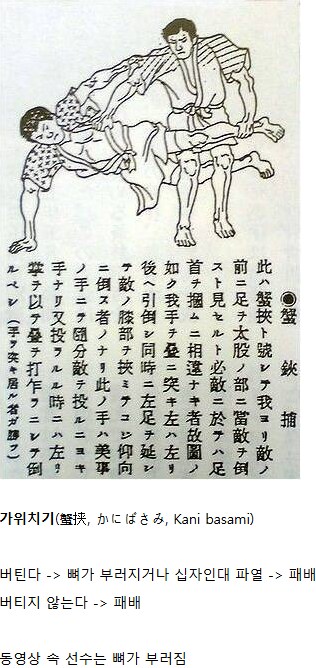 ◉蟹鋏捕
此ハ蟹挾ト號シテ我ヨリ敵ノ
前ニ足ヲ太股ノ部ニ當敵ヲ倒
スト見セルト必敵ニ於テハ足
首ヲ摑ムニ相違ナキ者故圖ノ
如ク我手ヲ疊ニ突キ左ハ左リ
後ヘ引倒シ同時ニ左足ヲ延シ
テ敵ノ膝部ヲ挾ミテコジ仰向
ニ倒ス者ノナリ此ノ手ハ美事
ノ手ニテ隨分敵ヲ投ルニヨキ
手ナリ又投ラルル時ニハ左リ
掌ヲ以テ疊ヲ打乍ラニシテ倒
ルベシ (手ヲ突キ居ル者ガ勝ヲ)
가위치기(蟹挟, かにばさみ, Kani basami)
버틴다 -> 뼈가 부러지거나 십자인대 파열 -> 패배
버티지 않는다 -> 패배
동영상 속 선수는 뼈가 부러짐